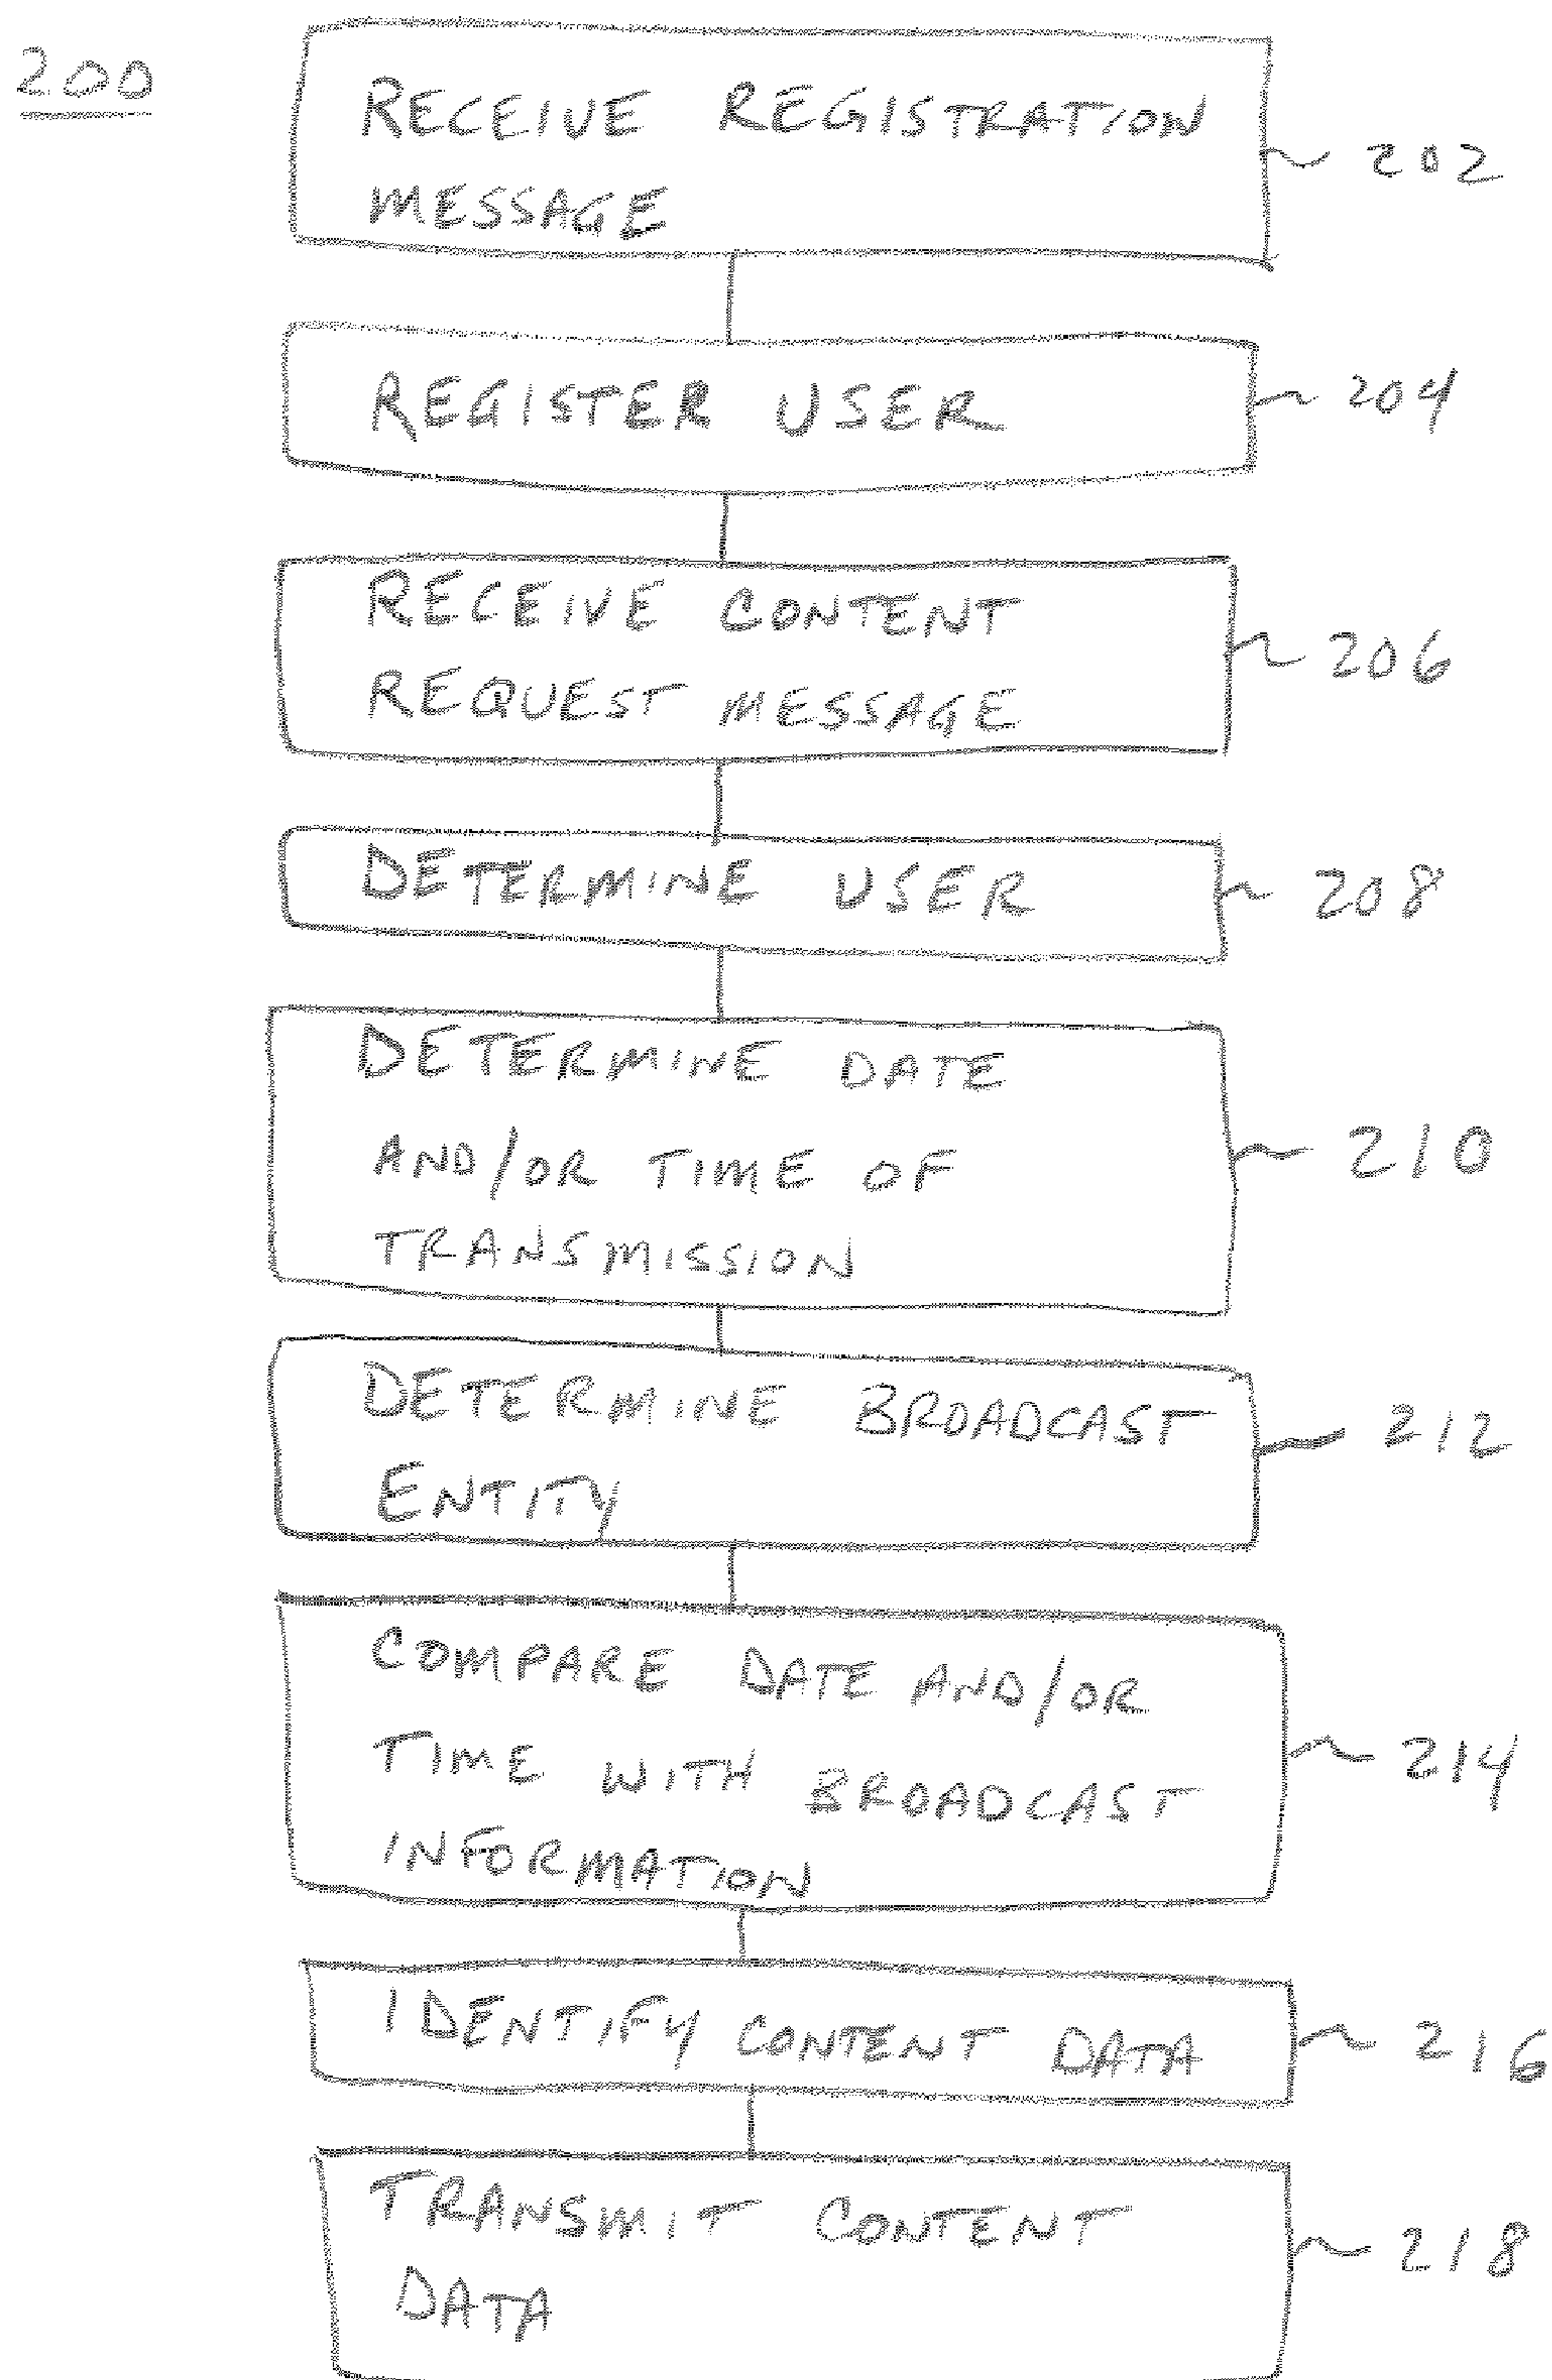 200
RECEIVE REGISTRATION
MESSAGE
202
REGISTER USER
204
RECEIVE CONTENT
REQUEST MESSAGE
206
DETERMINE USER
208
DETERMINE DATE
AND/OR TIME OF
TRANSMISSION
210
DETERMINE BROADCAST
ENTITY
212
COMPARE DATE AND/OR
TIME WITH BROADCAST
INFORMATION
214
IDENTIFY CONTENT DATA
216
TRANSMIT CONTENT
DATA
218